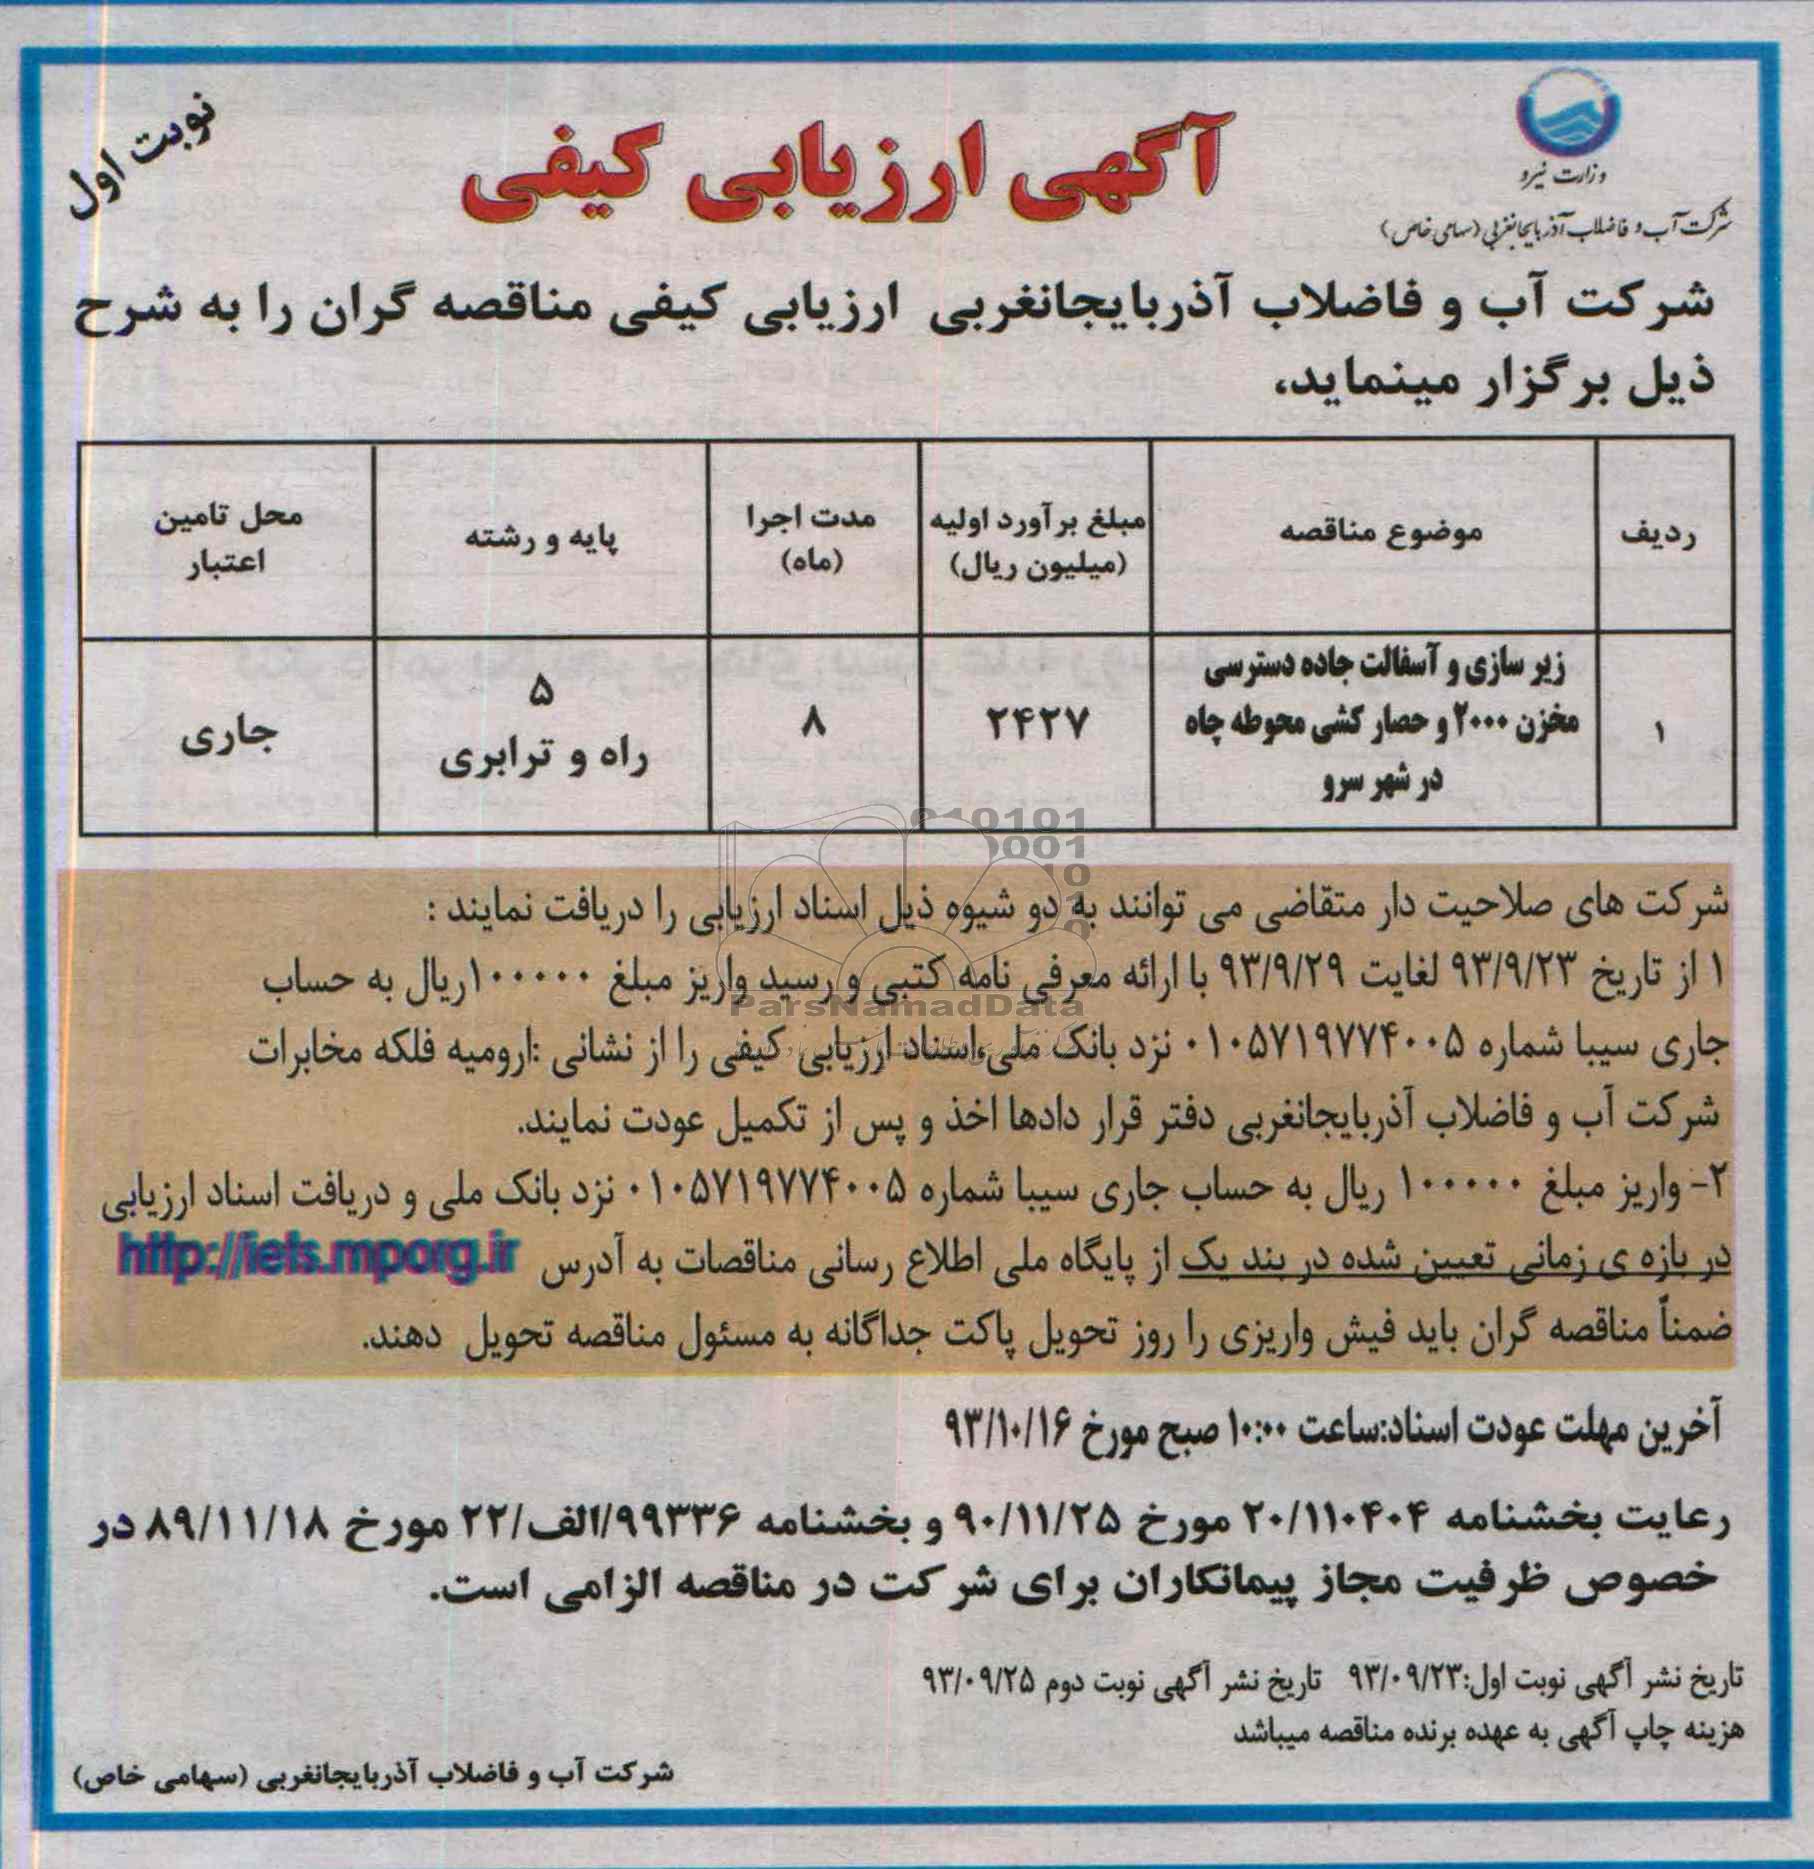 نوبت اول
آگهی ارزیابی کیفی
وزارت نیرو
شرکت آب و فاضلاب آذربایجانغربی (سهامی خاص)
شرکت آب و فاضلاب آذربایجانغربی ارزیابی کیفی مناقصه گران را به شرح
ذیل برگزار مینماید،
ردیف
موضوع مناقصه
مبلغ برآورد اولیه
(میلیون ریال)
مدت اجرا
(ماه)
پایه و رشته
محل تامین
اعتبار
۱
زیر سازی و آسفالت جاده دسترسی
مخزن ۲۰۰۰ و حصار کشی محوطه چاه
در شهر سرو
۲۴۲۷
۸
۵
راه و ترابری
جاری
شرکت های صلاحیت دار متقاضی می توانند به دو شیوه ذیل اسناد ارزیابی را دریافت نمایند :
۱ از تاریخ ۹۳/۹/۲۳ لغایت ۹۳/۹/۲۹ با ارائه معرفی نامه کتبی و رسید واریز مبلغ ۱۰۰۰۰۰ریال به حساب
جاری سیبا شماره ۰۱۰۵۷۱۹۷۷۴۰۰۵ نزد بانک ملی،اسناد ارزیابی کیفی را از نشانی :ارومیه فلکه مخابرات
شرکت آب و فاضلاب آذربایجانغربی دفتر قرار دادها اخذ و پس از تکمیل عودت نمایند.
۲- واریز مبلغ ۱۰۰۰۰۰ ریال به حساب جاری سیبا شماره ۰۱۰۵۷۱۹۷۷۴۰۰۵ نزد بانک ملی و دریافت اسناد ارزیابی
در بازه ی زمانی تعیین شده در بند یک از پایگاه ملی اطلاع رسانی مناقصات به آدرس http://iets.mporg.ir
ضمناً مناقصه گران باید فیش واریزی را روز تحویل پاکت جداگانه به مسئول مناقصه تحویل دهند.
ParsNamadData
آخرین مهلت عودت اسناد:ساعت ۱۰:۰۰ صبح مورخ ۹۳/۱۰/۱۶
رعایت بخشنامه ۲۰/۱۱۰۴۰۴ مورخ ۹۰/۱۱/۲۵ و بخشنامه ۹۹۳۳۶/الف/۲۲ مورخ ۸۹/۱۱/۱۸ در
خصوص ظرفیت مجاز پیمانکاران برای شرکت در مناقصه الزامی است.
تاریخ نشر آگهی نوبت اول:۹۳/۰۹/۲۳ تاریخ نشر آگهی نوبت دوم ۹۳/۰۹/۲۵
هزینه چاپ آگهی به عهده برنده مناقصه میباشد
شرکت آب و فاضلاب آذربایجانغربی (سهامی خاص)